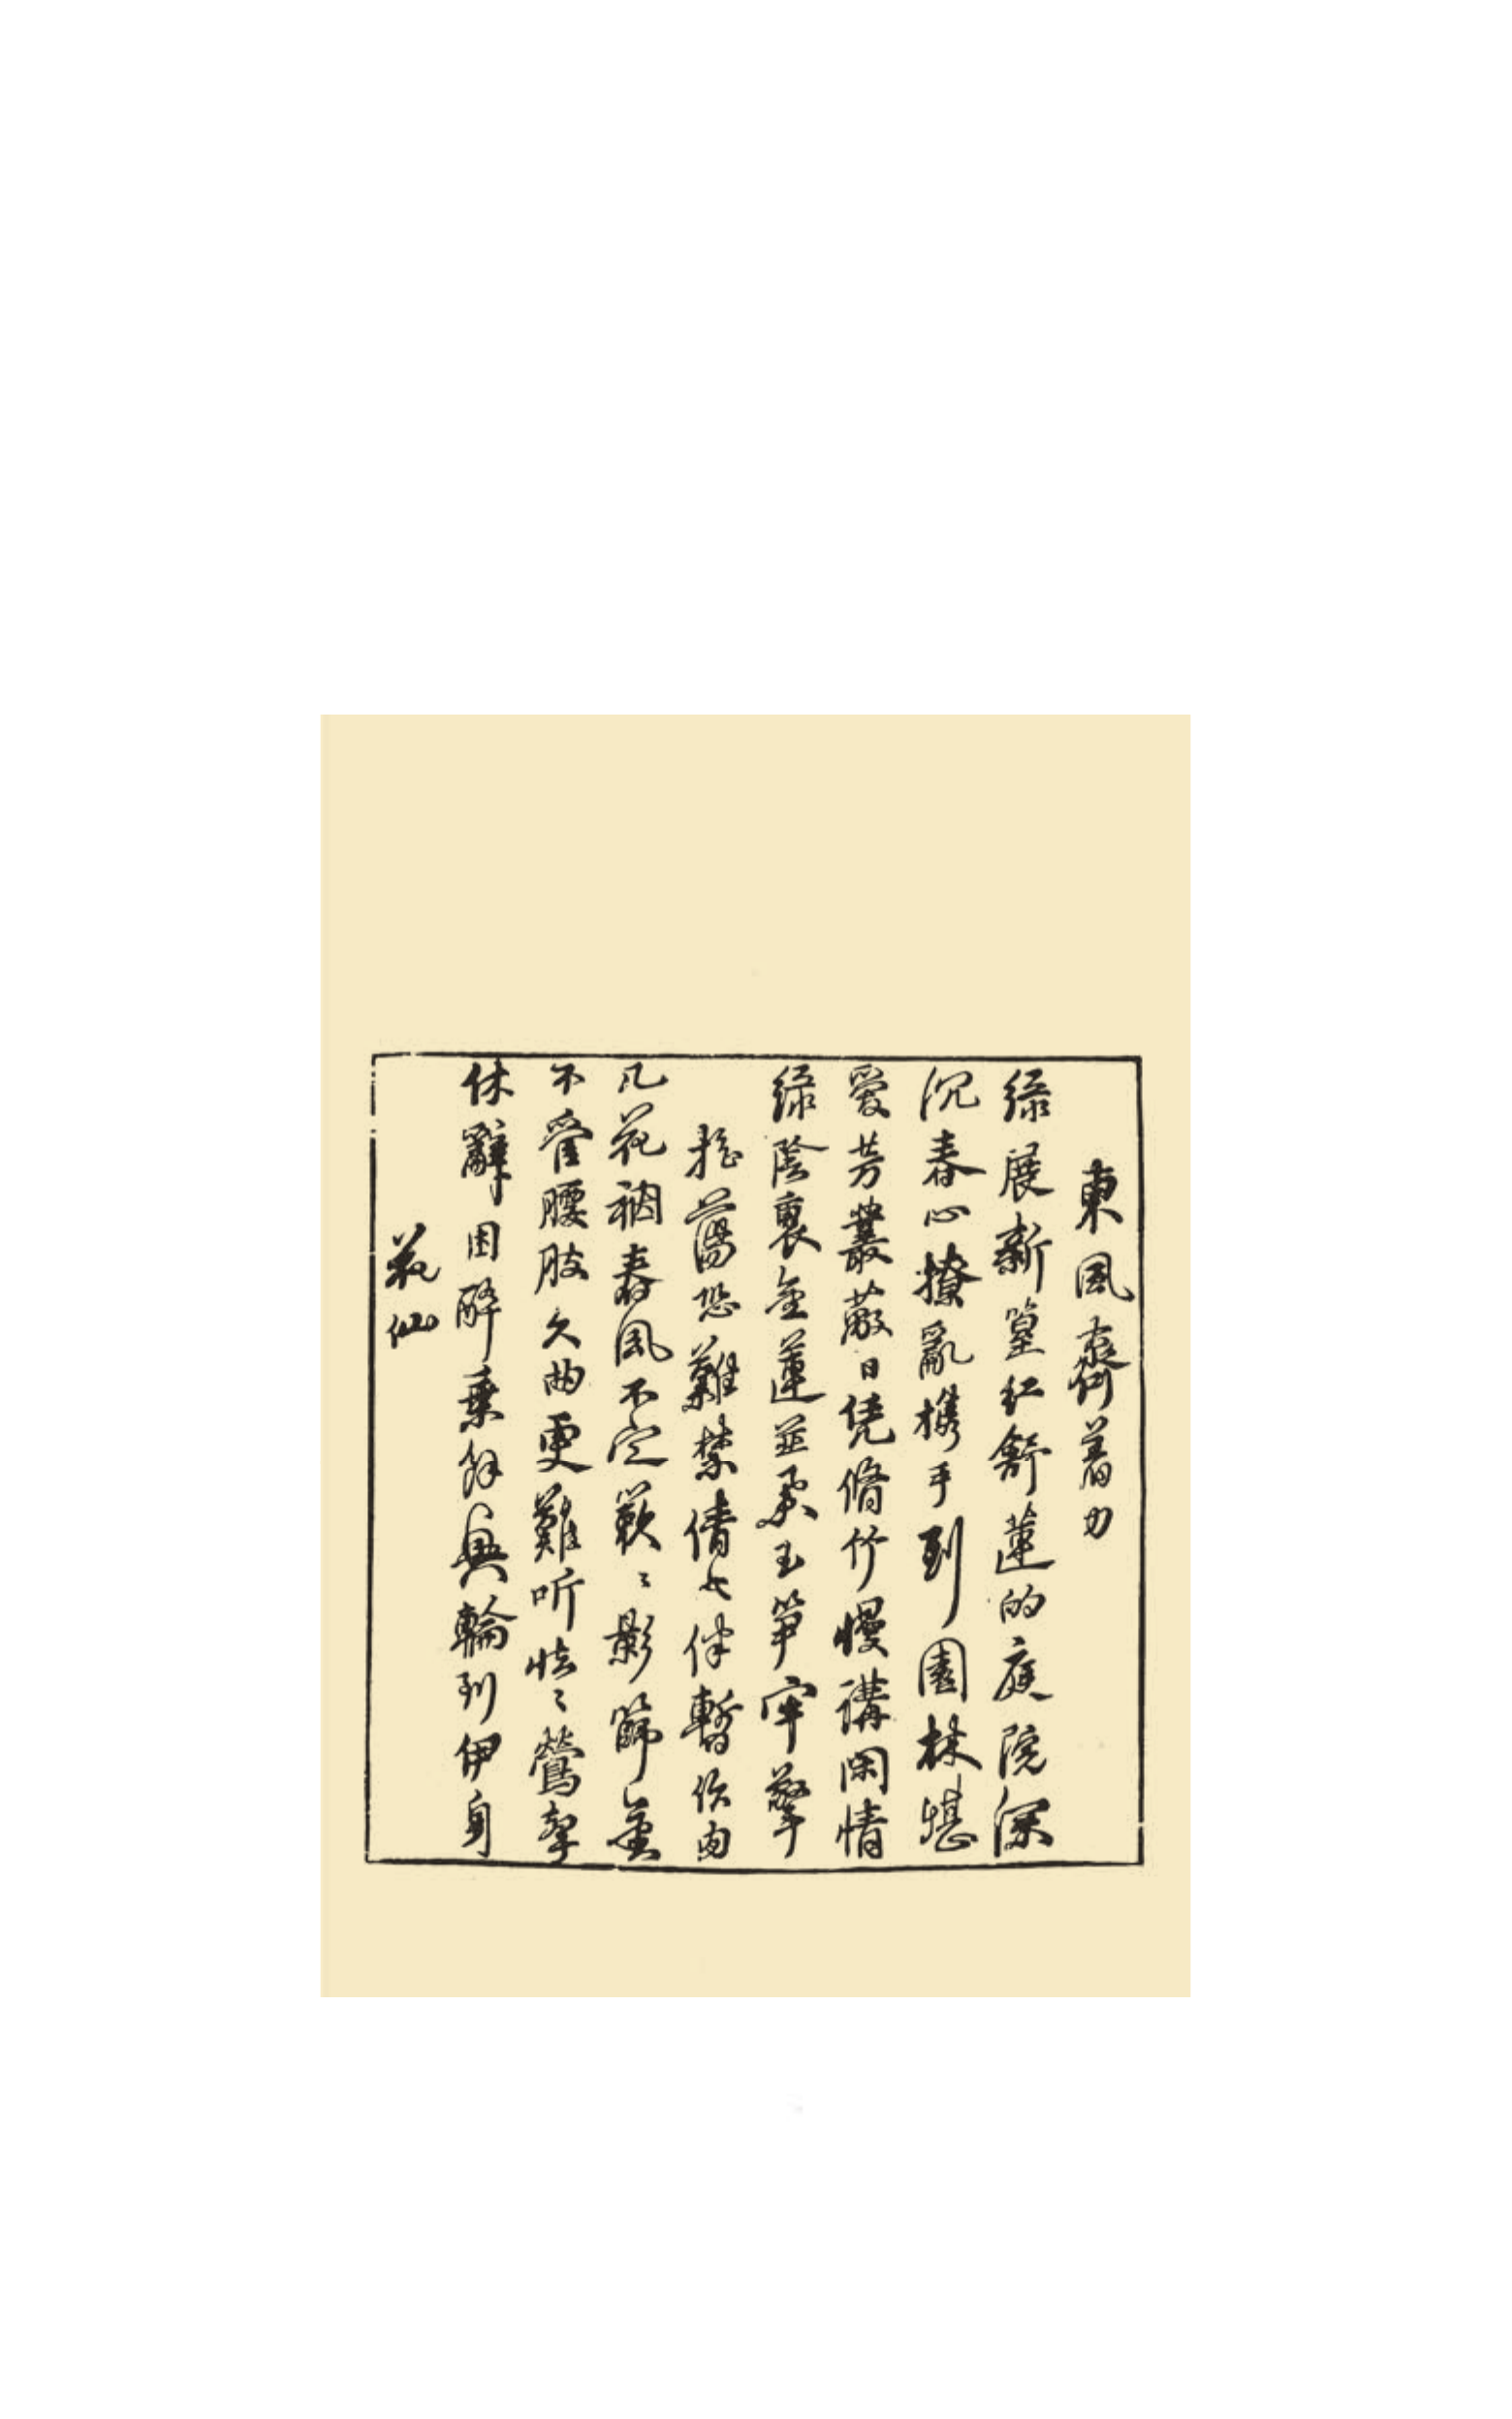 東風齊着力
綠展新篁紅舒蓮的庭院深
沉春心撩亂携手到園林堪
愛芳叢蔽日凭脩竹慢講閑情
綠陰裏金蓮並柔玉笋牢擎
搖蕩恐難禁倩女伴暫作肉
几花裀春風不定款〻影篩金
不管腰肢久曲更難听怯〻鶯聲
休辭困醉乘餘興輪到伊身
花仙